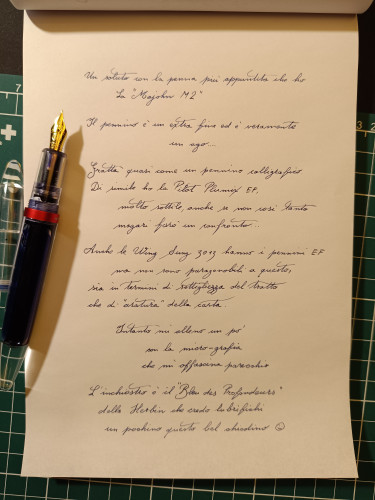 Un saluto con la penna più appuntita che ho
La "Majohn M2"
Il pennino è un extra fine ed è veramente
un ago...
Gratta quasi come un pennino calligrafico
Di simile ho la Pilot Plumex EF.
molto sottile, anche se non così tanto
magari farò un confronto...
Anche le Wing Sung 3013 hanno i pennini EF
ma non sono paragonabili a questo,
sia in termini di sottigliezza del tratto
che di "aratura" della carta
Intanto mi alleno un po'
con la micro-grafia
che mi affascina parecchio
L'inchiostro è il "Bleu des Profondeurs"
della Herbin che credo lubrifichi
un pochino questo bel chiodino ☺
7
3 2